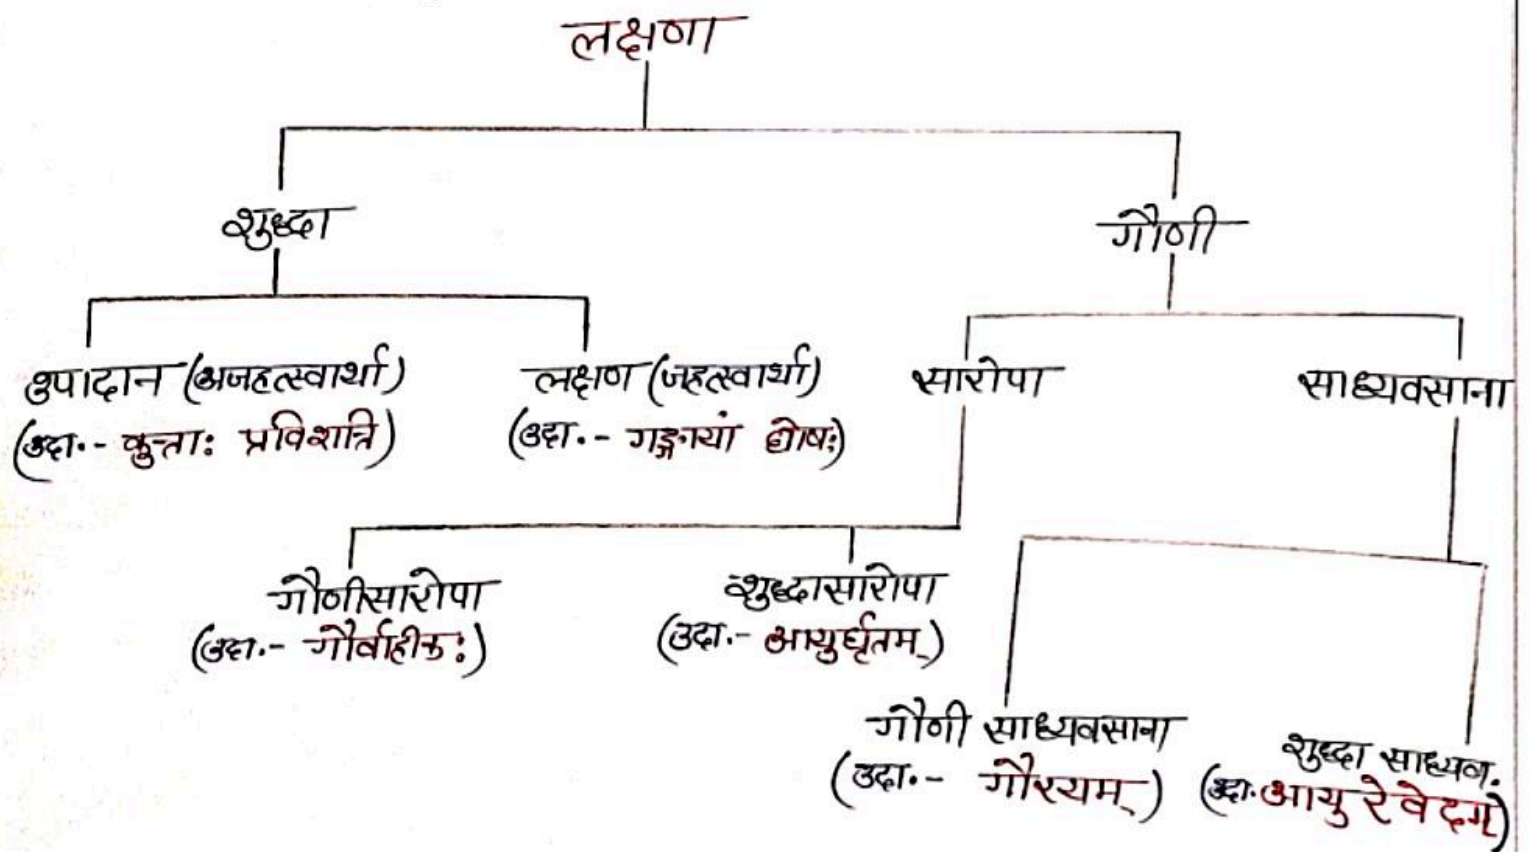 लक्षणा
शुद्धा
गौणी
उपादान (अजहत्स्वार्था)
(उदा.- कुन्ताः प्रविशन्ति)
लक्षण (जहत्स्वार्था)
(उदा.- गङ्गायां घोषः)
सारोपा
साध्यवसाना
गौणीसारोपा
(उदा.- गौर्वाहीकः)
शुद्धासारोपा
(उदा.- आयुर्घृतम्)
गौणी साध्यवसाना
(उदा.- गौरयम्)
शुद्धा साध्यव.
(उदा. आयु रे वे दम्)